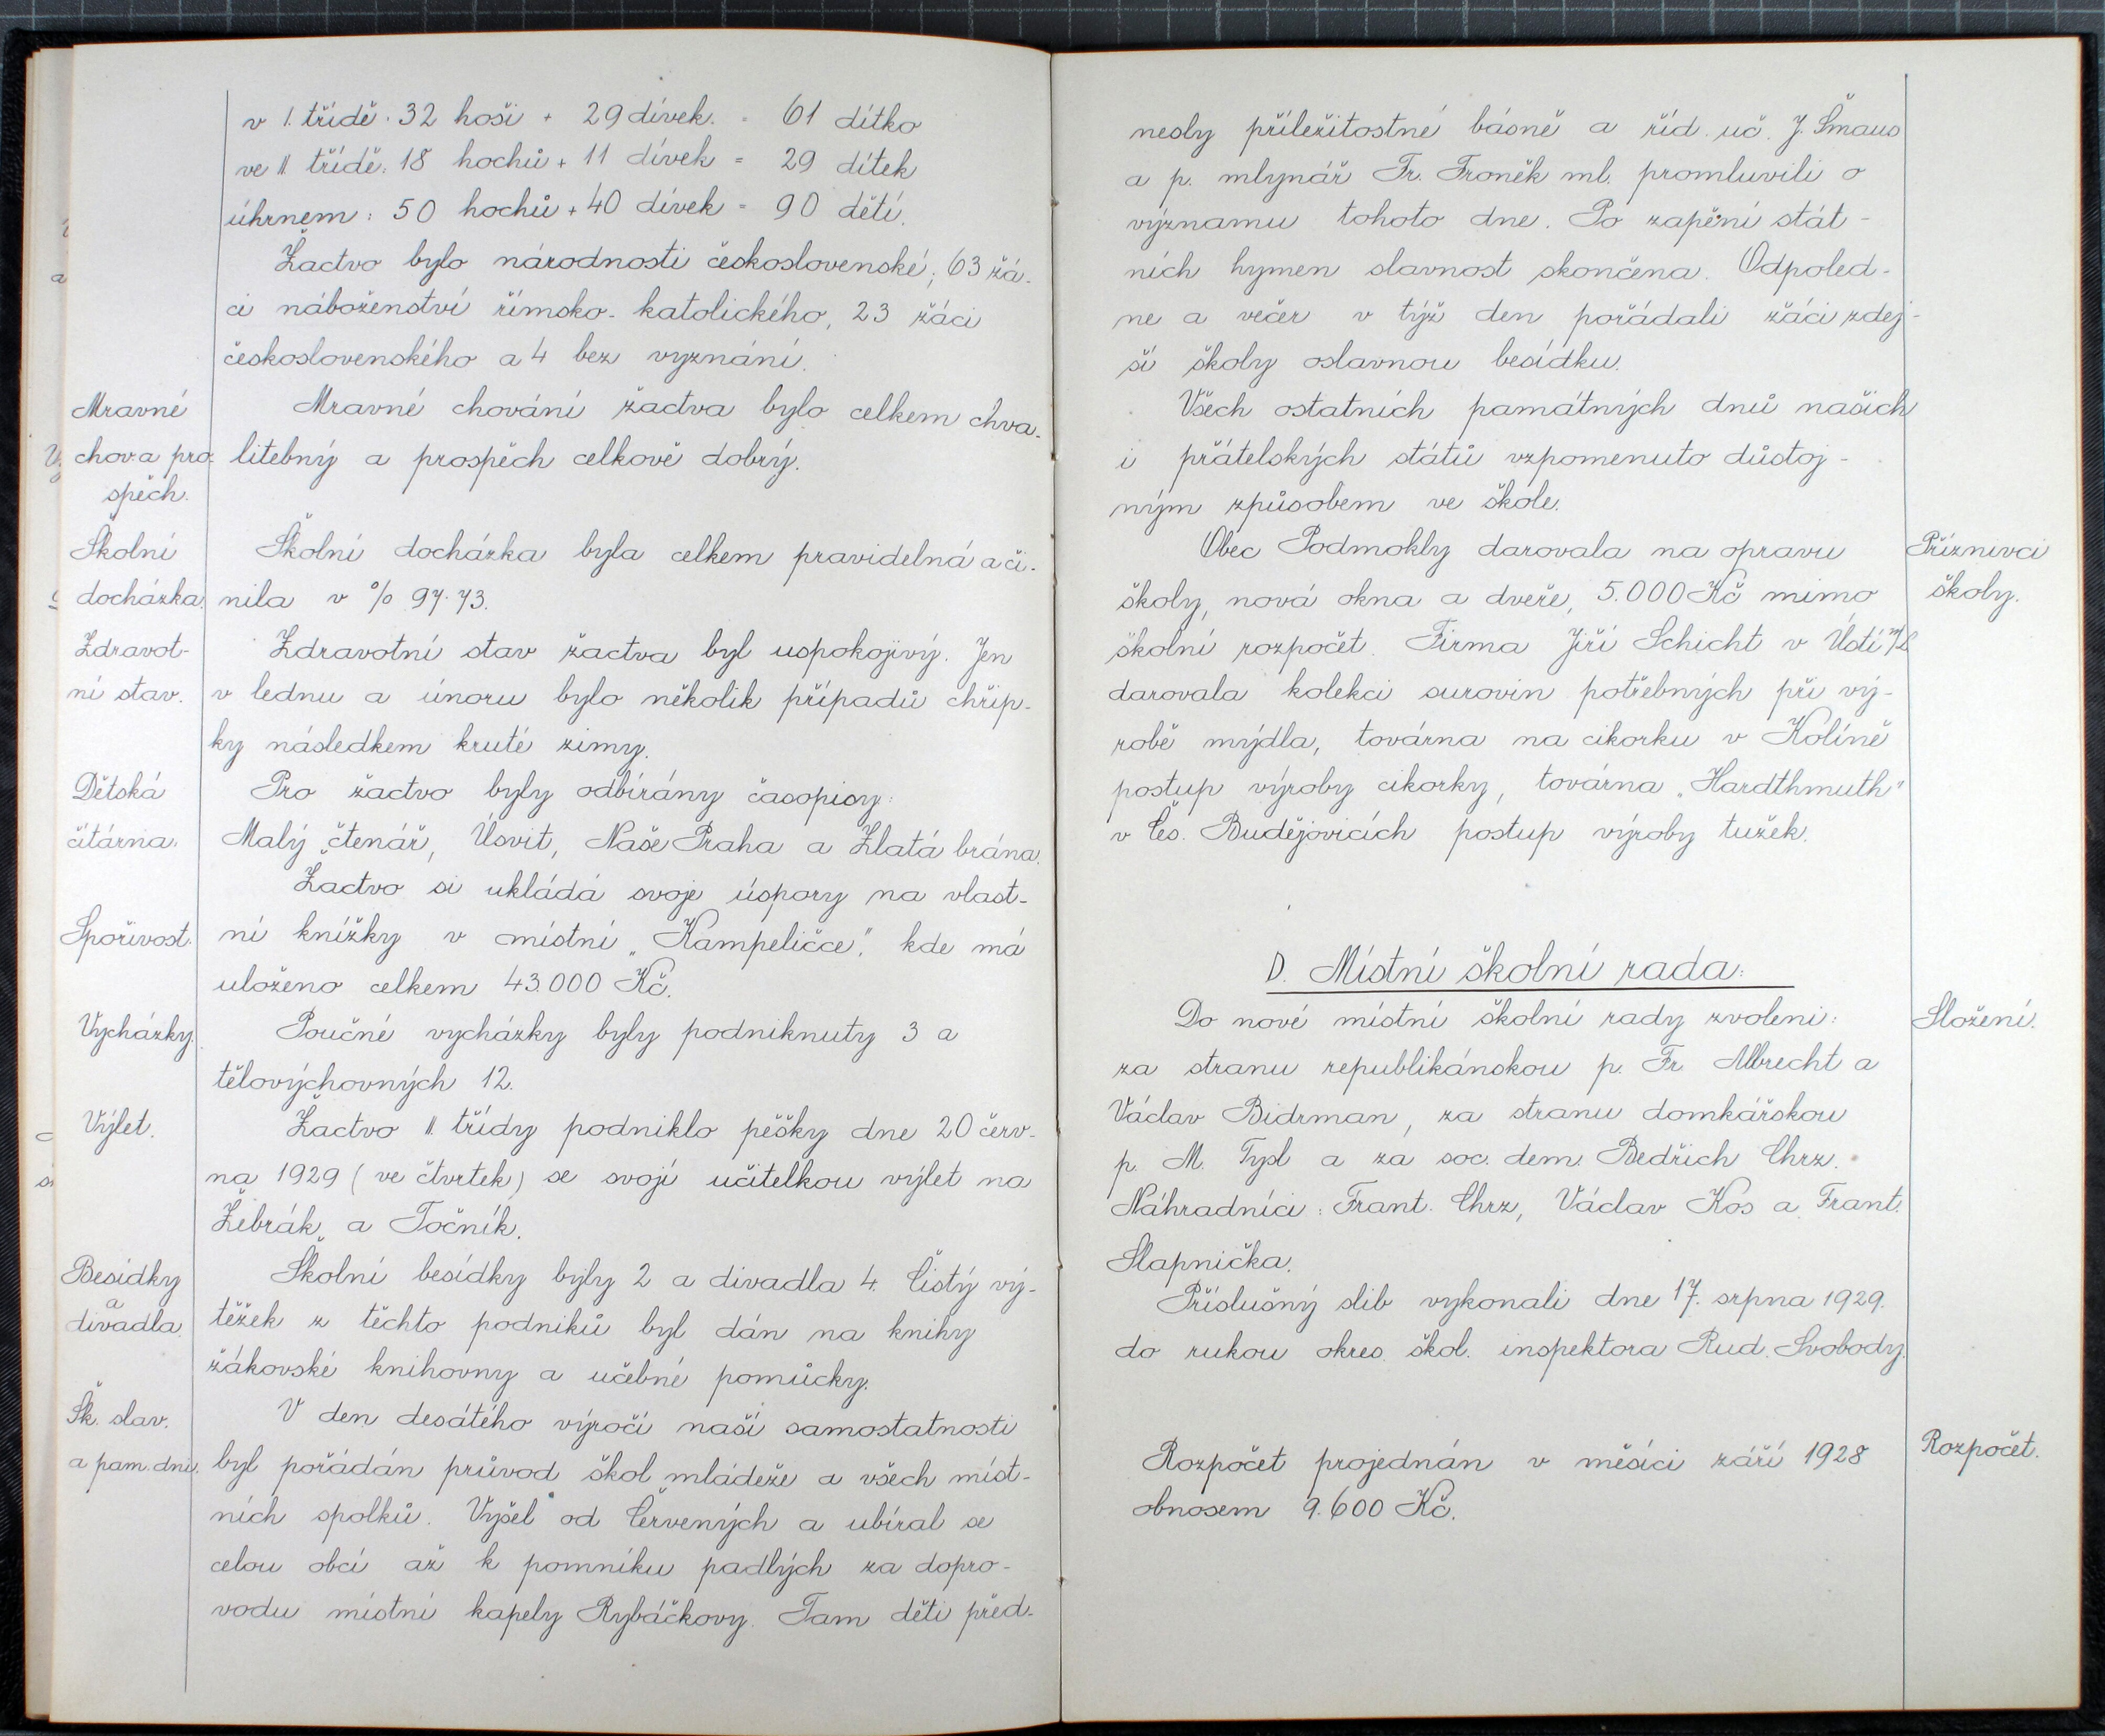 v I. třídě: 32 hoši + 29 dívek = 61 dítko
ve II. třídě: 18 hochů + 11 dívek = 29 dítek
úhrnem: 50 hochů + 40 dívek = 90 dětí.
Žactvo bylo národnosti československé; 63 žá-
ci náboženství římsko-katolického, 23 žáci
československého a 4 bez vyznání.
Mravné
chov. a pro-
spěch.
Mravné chování žactva bylo celkem chva-
litebný a prospěch celkově dobrý.
Školní
docházka.
Školní docházka byla celkem pravidelná a či-
nila v % 97.73.
Zdravot-
ní stav.
Zdravotní stav žactva byl uspokojivý. Jen
v lednu a únoru bylo několik případů chřip-
ky následkem kruté zimy.
Dětská
čítárna.
Pro žactvo byly odbírány časopisy:
Malý čtenář, Úsvit, Naše Praha a Zlatá brána.
Spořivost.
Žactvo si ukládá svoje úspory na vlast-
ní knížky v místní „Kampeličce“, kde má
uloženo celkem 43.000 Kč.
Vycházky.
Poučné vycházky byly podniknuty 3 a
tělovýchovných 12.
Výlet.
Žactvo II. třídy podniklo pěšky dne 20 červ-
na 1929 (ve čtvrtek) se svojí učitelkou výlet na
Žebrák a Točník.
Besídky
a
divadla.
Školní besídky byly 2 a divadla 4. Čistý vý-
těžek z těchto podniků byl dán na knihy
žákovské knihovny a učebné pomůcky.
Šk. slav.
a pam. dni.
V den desátého výročí naší samostatnosti
byl pořádán průvod škol. mládeže a všech míst-
ních spolků. Vyšel od Červených a ubíral se
celou obcí až k pomníku padlých za dopro-
vodu místní kapely Rybáčkovy. Tam děti před-
nesly příležitostné básně a říd. uč. J. Šmaus
a p. mlynář Fr. Froněk ml. promluvili o
významu tohoto dne. Po zapění stát-
ních hymen slavnost skončena. Odpoled-
ne a večer v týž den pořádali žáci zdej-
ší školy oslavnou besídku.
Všech ostatních památných dnů našich
i přátelských států vzpomenuto důstoj-
ným způsobem ve škole.
Příznivci
školy.
Obec Podmokly darovala na opravu
školy, nová okna a dveře, 5.000 Kč mimo
školní rozpočet. Firma Jiří Schicht v Ústí n/L
darovala kolekci surovin potřebných při vý-
robě mýdla, továrna na cikorku v Kolíně
postup výroby cikorky, továrna „Hardthmuth“
v Čes. Budějovicích postup výroby tužek.
D. Místní školní rada:
Složení.
Do nové místní školní rady zvoleni:
za stranu republikánskou p. Fr. Albrecht a
Václav Bidrman, za stranu domkářskou
p. M. Typl a za soc. dem. Bedřich Chrz.
Náhradníci: Frant. Chrz, Václav Kos a Frant.
Slapnička.
Příslušný slib vykonali dne 17. srpna 1929.
do rukou okres. škol. inspektora Rud. Svobody.
Rozpočet.
Rozpočet projednán v měsíci září 1928
obnosem 9.600 Kč.